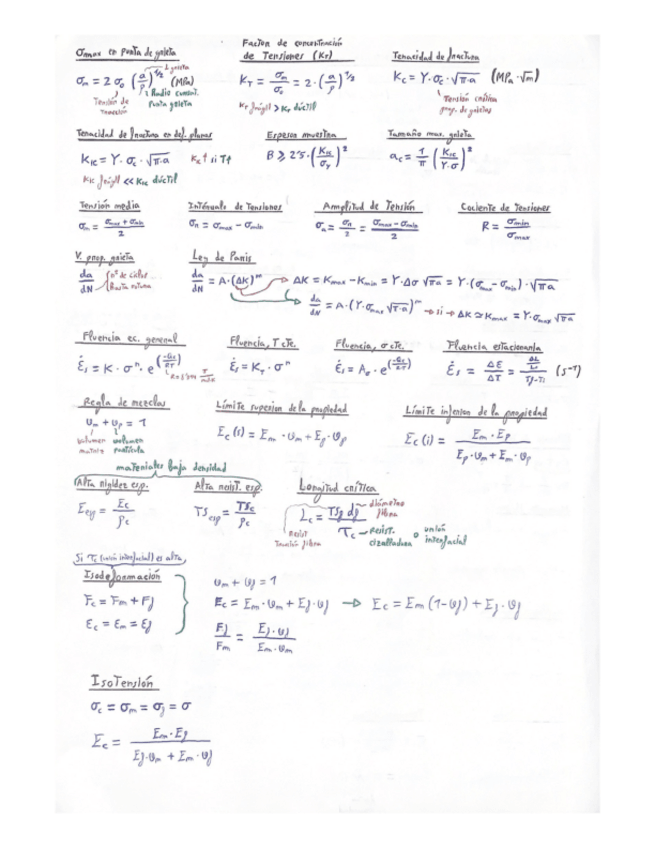 σmax en punta de grieta
σm = 2 σo (a/ρ)^1/2 (MPa)
½ grieta
Radio curvat. Punta grieta
Tensión de tracción
Factor de concentración de Tensiones (KT)
KT = σm/σo = 2·(a/ρ)^1/2
KT frágil > KT dúctil
Tenacidad de fractura
Kc = Y·σc·√π·a (MPa·√m)
Tensión crítica
prop. de grietas
Tenacidad de fractura en def. planas
KIC = Y·σc·√π·a
KIC frágil << KIC dúctil
Espesor muestra
B ≥ 2'5·(KIC/σy)²
Tamaño max. grieta
ac = 1/π (KIC/Y·σ)²
Tensión media
σm = (σmax + σmin)/2
Intérvalo de Tensiones
σr = σmax − σmin
Amplitud de Tensión
σa = σr/2 = (σmax − σmin)/2
Cociente de Tensiones
R = σmin/σmax
V. prop. grieta
da/dN
nº de ciclos
hasta rotura
Ley de Paris
da/dN = A·(ΔK)^m → ΔK = Kmax − Kmin = Y·Δσ √πa = Y·(σmax − σmin)·√πa
da/dN = A·(Y·σmax √π·a)^m → si → ΔK ≃ Kmax = Y·σmax √πa
Fluencia ec. general
ε̇s = K·σ^n·e^(−Qc/RT)
Fluencia, T cte.
ε̇s = KT·σ^n
Fluencia, σ cte.
ε̇s = Ao·e^(−Qc/RT)
Fluencia estacionaria
ε̇s = Δε/ΔT = (ΔL/Lo)/(Tf−Ti) (s⁻¹)
Regla de mezclas
υm + υp = 1
volumen matriz
volumen partícula
Límite superior de la propiedad
Ec (s) = Em·υm + Ep·υp
Límite inferior de la propiedad
Ec (i) = Em·Ep / (Ep·υm + Em·υp)
materiales baja densidad
Alta rigidez esp.
Eesp = Ec/ρc
Alta resist. esp.
TSesp = TSc/ρc
Longitud crítica
Lc = TSf df / τc
diámetro fibra
Resist Tracción fibra
Resist. cizalladura o unión interfacial
Si τc (unión interfacial) es alta
Isodeformación
Fc = Fm + Ff
εc = εm = εf
υm + υf = 1
Ec = Em·υm + Ef·υf → Ec = Em (1−υf) + Ef·υf
Ff/Fm = Ef·υf / Em·υm
IsoTensión
σc = σm = σf = σ
Ec = Em·Ef / (Ef·υm + Em·υf)